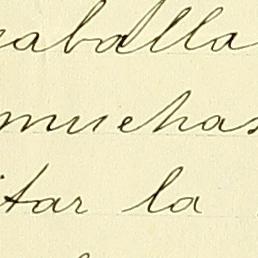 caballa
muchas
itar la